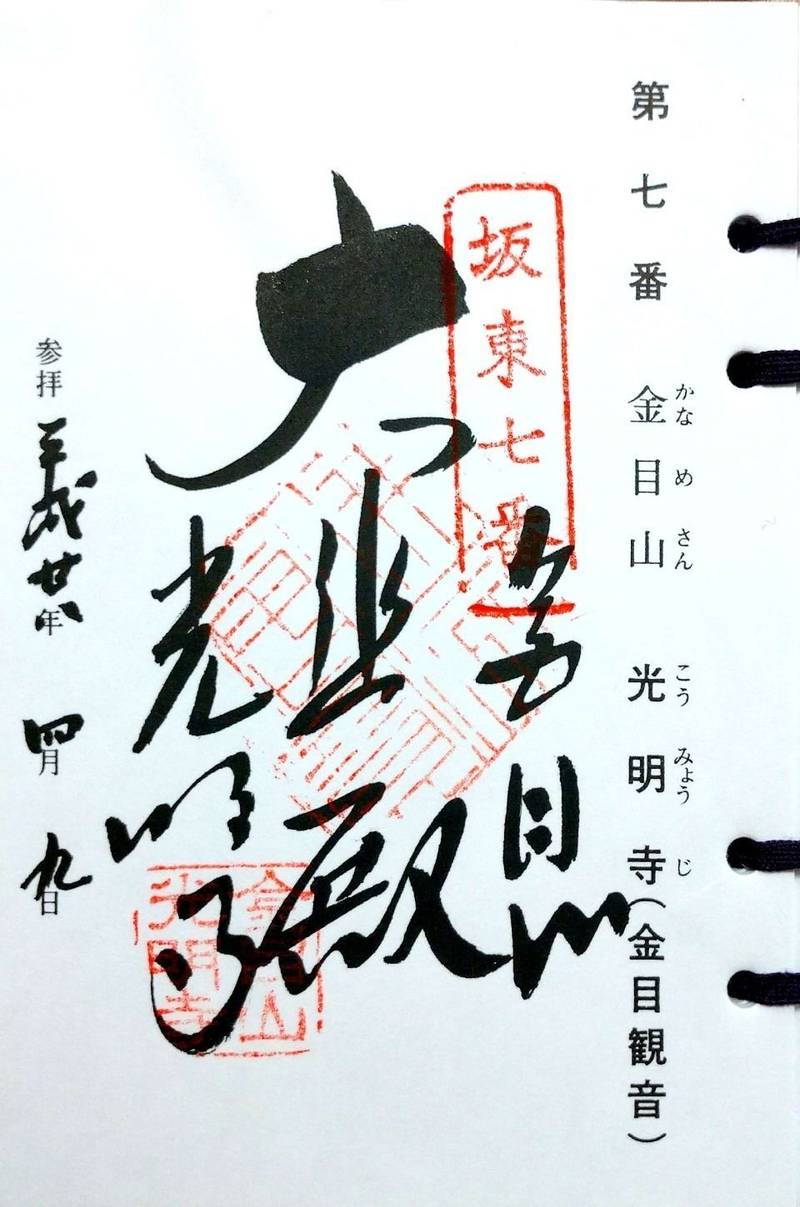 第七番 金目山 光明寺(金目観音)
かなめさん こうみょうじ
坂東七番
金目山
大悲殿
光明寺
金目山
光明寺
参拝 平成廿八年 四月 九日